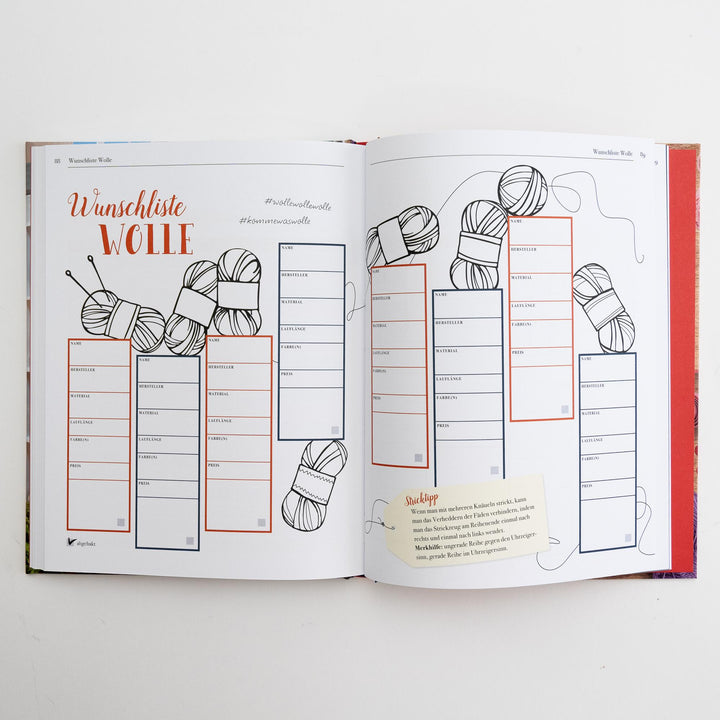 88 Wunschliste Wolle
Wunschliste
WOLLE
#wollewollewolle
#kommewaswolle
NAME
HERSTELLER
MATERIAL
LAUFLÄNGE
FARBE(N)
PREIS
NAME
HERSTELLER
MATERIAL
LAUFLÄNGE
FARBE(N)
PREIS
NAME
HERSTELLER
MATERIAL
LAUFLÄNGE
FARBE(N)
PREIS
NAME
HERSTELLER
MATERIAL
LAUFLÄNGE
FARBE(N)
PREIS
abgehakt
Wunschliste Wolle 89
NAME
HERSTELLER
MATERIAL
LAUFLÄNGE
FARBE(N)
PREIS
NAME
HERSTELLER
MATERIAL
LAUFLÄNGE
FARBE(N)
PREIS
NAME
HERSTELLER
MATERIAL
LAUFLÄNGE
FARBE(N)
PREIS
NAME
HERSTELLER
MATERIAL
LAUFLÄNGE
FARBE(N)
PREIS
Stricktipp
Wenn man mit mehreren Knäueln strickt, kann
man das Verheddern der Fäden verhindern, indem
man das Strickzeug am Reihenende einmal nach
rechts und einmal nach links wendet.
Merkhilfe: ungerade Reihe gegen den Uhrzeiger-
sinn, gerade Reihe im Uhrzeigersinn.